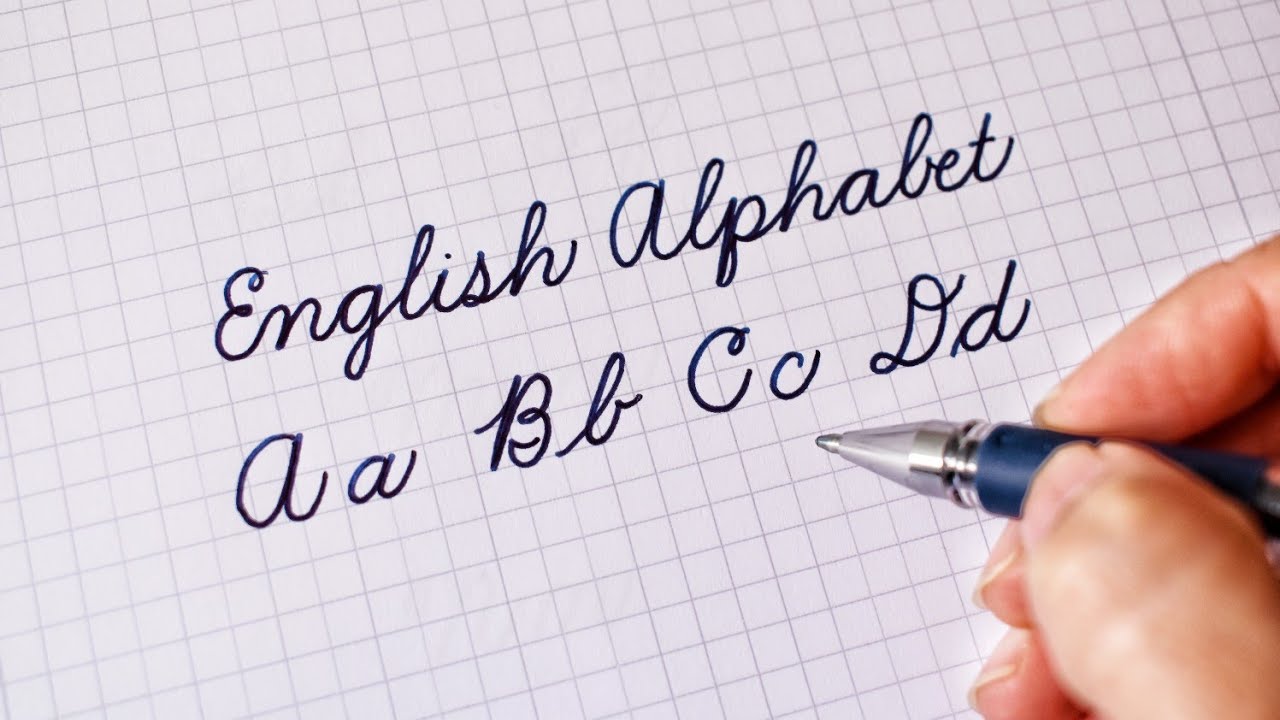 English Alphabet
Aa Bb Cc Dd